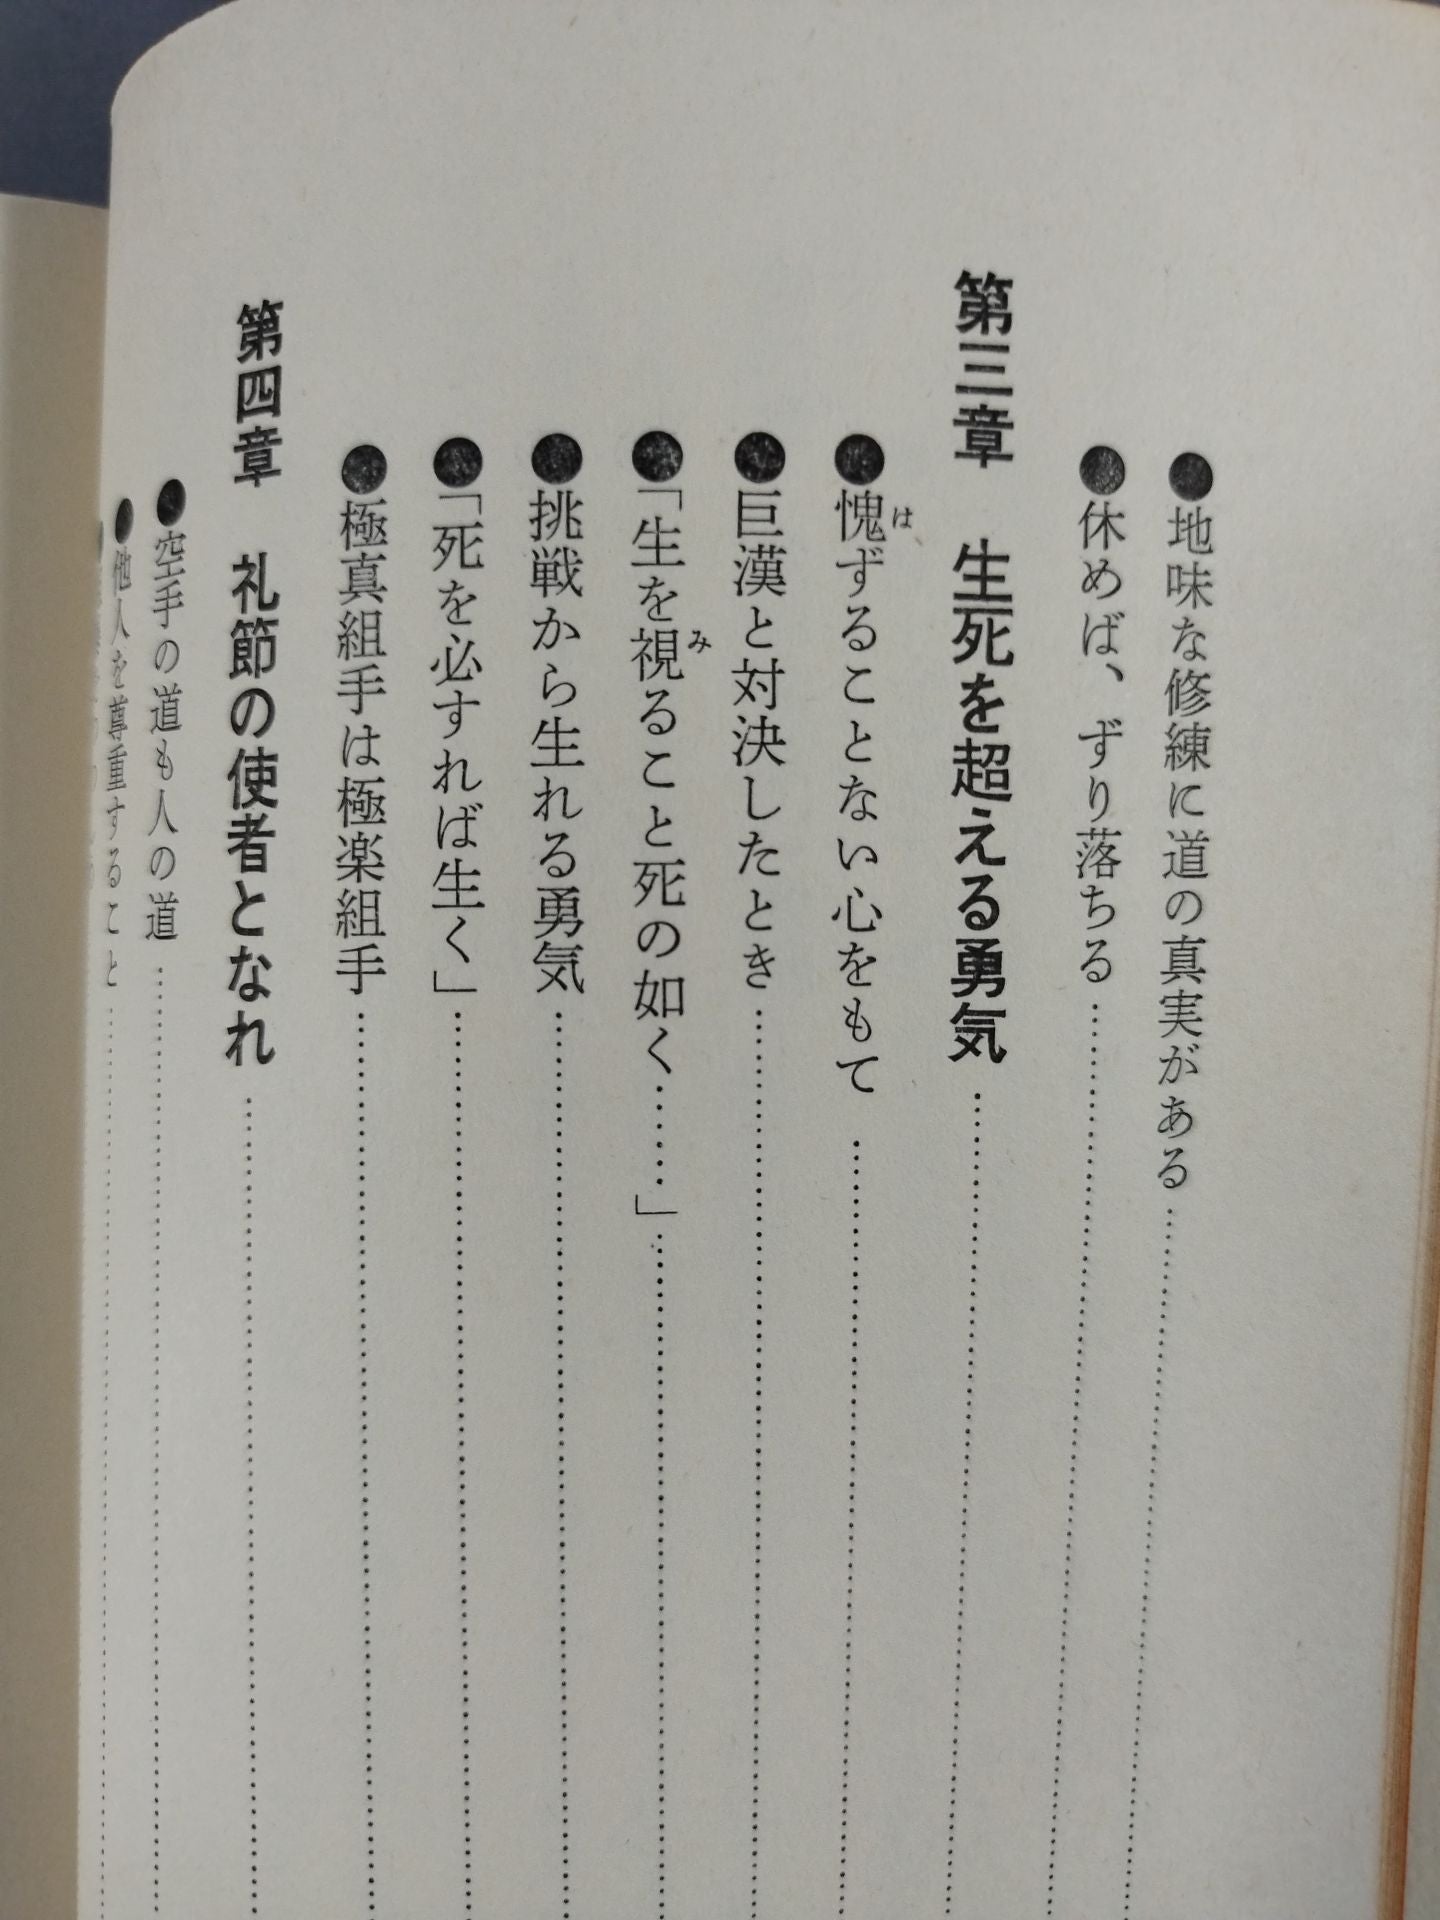 ●地味な修練に道の真実がある…………
●休めば、ずり落ちる…………
第三章　生死を超える勇気…………
●愧ずることない心をもて…………
は
●巨漢と対決したとき…………
●「生を視ること死の如く……」…………
み
●挑戦から生れる勇気…………
●「死を必すれば生く」…………
●極真組手は極楽組手…………
第四章　礼節の使者となれ…………
●空手の道も人の道…………
●他人を尊重すること…………